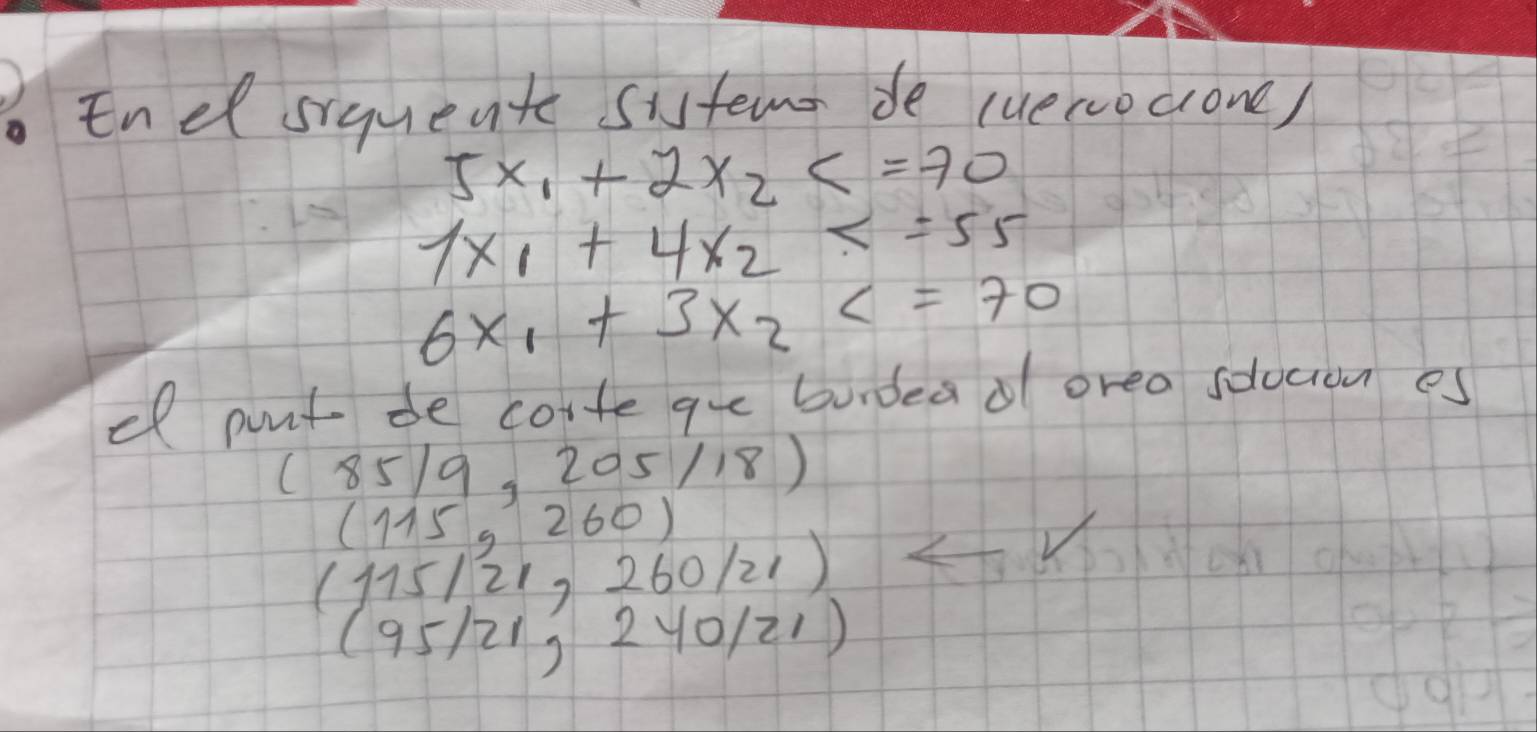 En el siguiente sistema de inecuaciones
5x₁ + 2x₂ < = 70
1x₁ + 4x₂ < = 55
6x₁ + 3x₂ < = 70
el punto de corte que bordea el area solucion es
(85/9, 205/18)
(115, 260)
(115/21, 260/21) ← ✓
(95/21, 240/21)